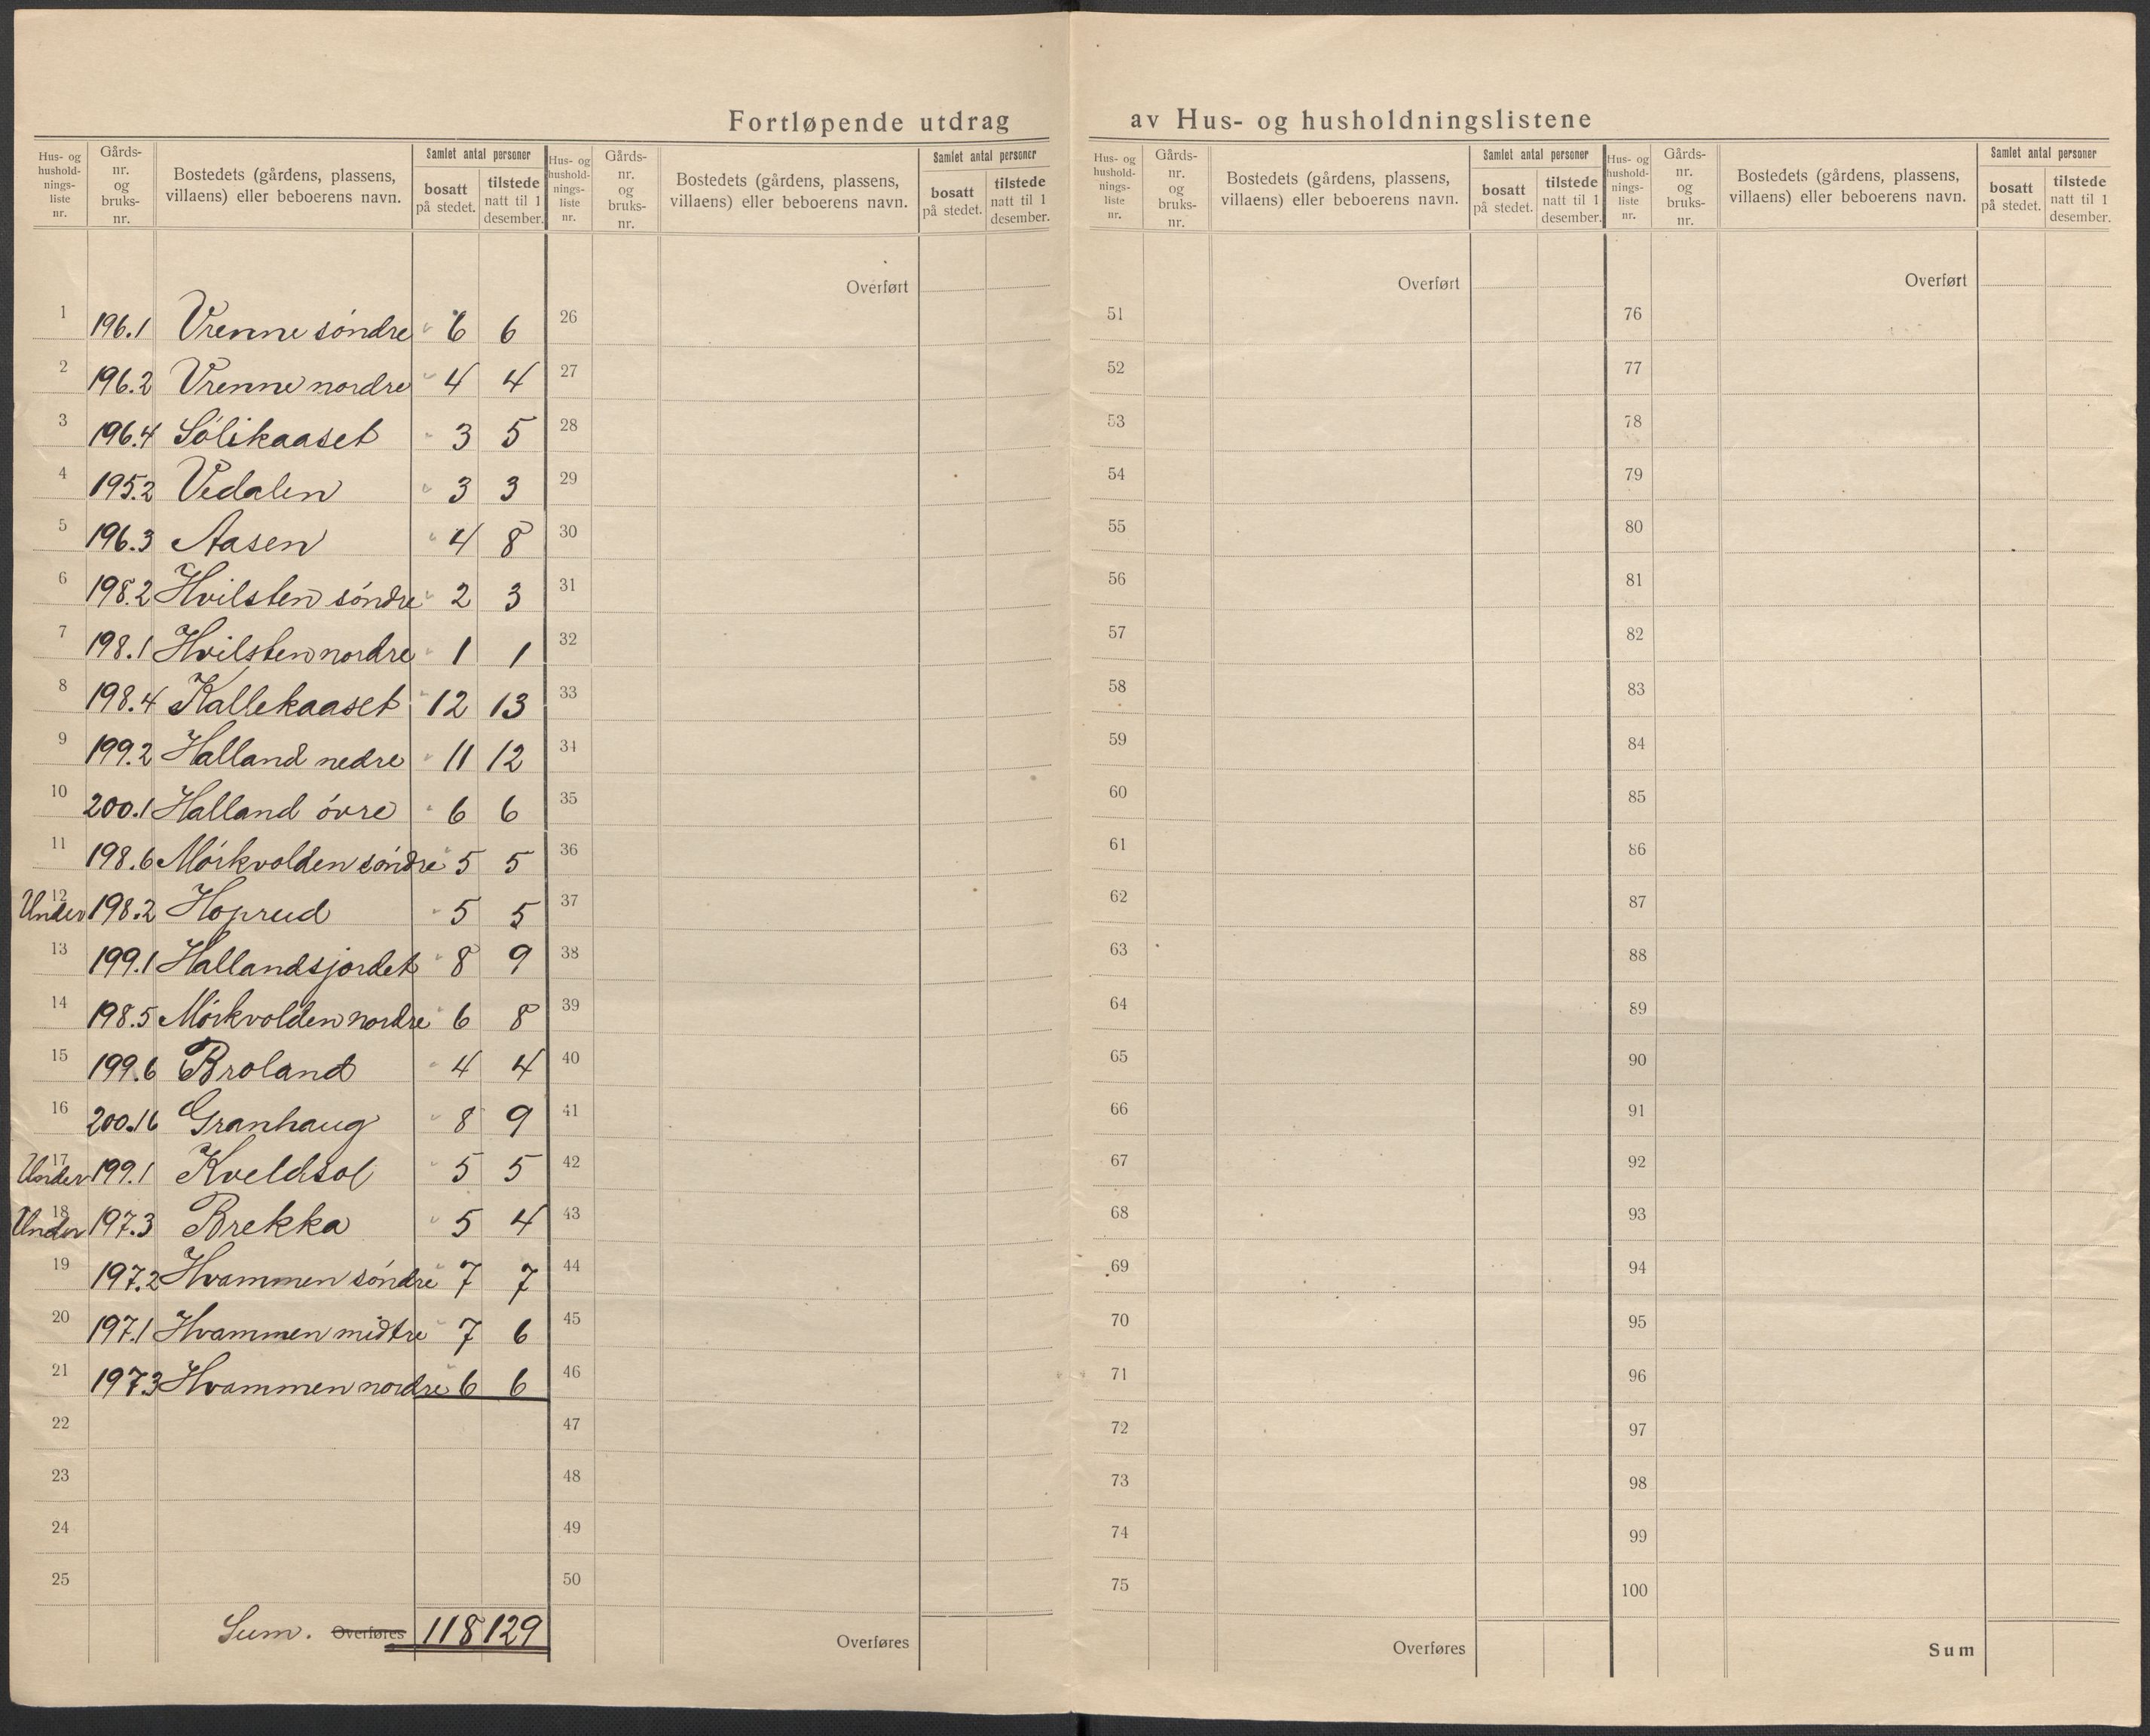 Fortløpende utdrag av Hus- og husholdningslistene
Hus- og hushold-nings-liste nr. | Gårds-nr. og bruks-nr. | Bostedets (gårdens, plassens, villaens) eller beboerens navn. | Samlet antal personer | bosatt på stedet. | tilstede natt til 1 desember.
1 196.1 Vrenne söndre 6 6
2 196.2 Vrenne nordre 4 4
3 196.4 Sölikaaset 3 5
4 195.2 Vedalen 3 3
5 196.3 Aasen 4 8
6 198.2 Hvilsten söndre 2 3
7 198.1 Hvilsten nordre 1 1
8 198.4 Kallekaaset 12 13
9 199.2 Halland nedre 11 12
10 200.1 Halland övre 6 6
11 198.6 Mörkvolden söndre 5 5
12 Under 198.2 Hoprud 5 5
13 199.1 Hallandsjordet 8 9
14 198.5 Mörkvolden nordre 6 8
15 199.6 Broland 4 4
16 200.16 Granhaug 8 9
17 Under 199.1 Kveldsol 5 5
18 Under 197.3 Brekka 5 4
19 197.2 Hvammen söndre 7 7
20 197.1 Hvammen midtre 7 6
21 197.3 Hvammen nordre 6 6
22
23
24
25
Sum. Overføres 118 129
Hus- og hushold-nings-liste nr. | Gårds-nr. og bruks-nr. | Bostedets (gårdens, plassens, villaens) eller beboerens navn. | Samlet antal personer | bosatt på stedet. | tilstede natt til 1 desember.
Overført
26
27
28
29
30
31
32
33
34
35
36
37
38
39
40
41
42
43
44
45
46
47
48
49
50
Overføres
Hus- og hushold-nings-liste nr. | Gårds-nr. og bruks-nr. | Bostedets (gårdens, plassens, villaens) eller beboerens navn. | Samlet antal personer | bosatt på stedet. | tilstede natt til 1 desember.
Overført
51
52
53
54
55
56
57
58
59
60
61
62
63
64
65
66
67
68
69
70
71
72
73
74
75
Overføres
Hus- og hushold-nings-liste nr. | Gårds-nr. og bruks-nr. | Bostedets (gårdens, plassens, villaens) eller beboerens navn. | Samlet antal personer | bosatt på stedet. | tilstede natt til 1 desember.
Overført
76
77
78
79
80
81
82
83
84
85
86
87
88
89
90
91
92
93
94
95
96
97
98
99
100
Sum